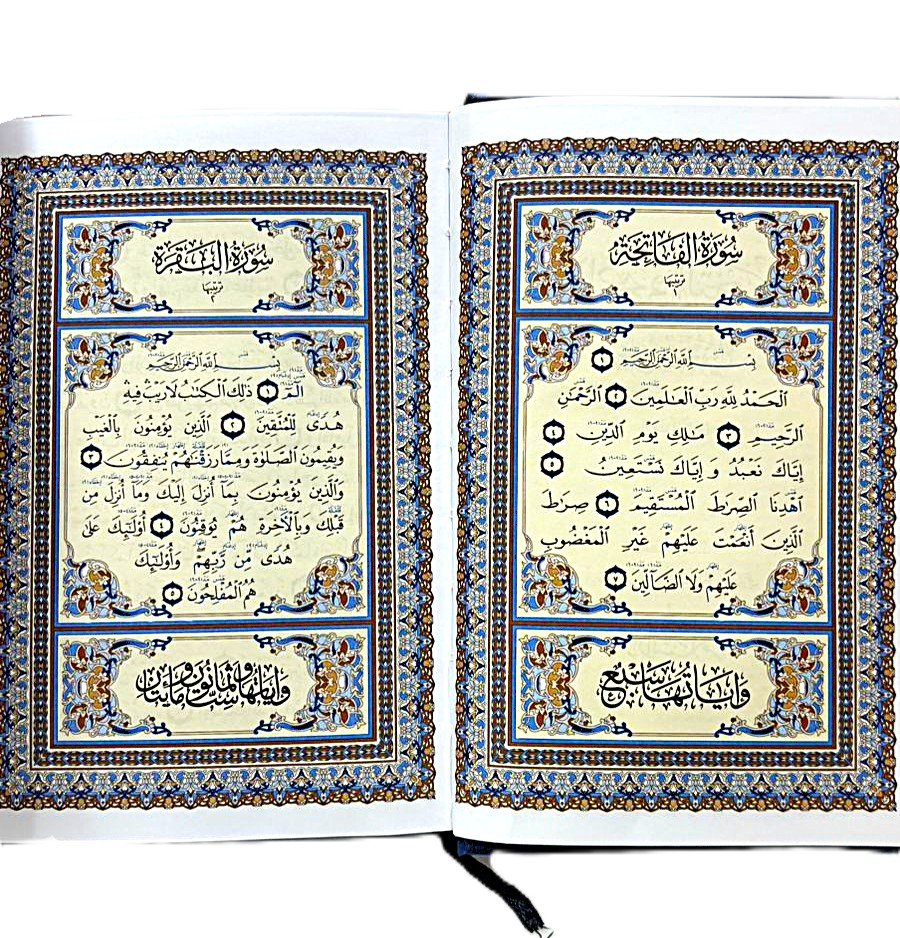 سُورَةُ الْفَاتِحَةِ
ترتيبها
١
بِسْمِ اللَّهِ الرَّحْمَٰنِ الرَّحِيمِ ١
الْحَمْدُ لِلَّهِ رَبِّ الْعَٰلَمِينَ ٢ الرَّحْمَٰنِ
الرَّحِيمِ ٣ مَٰلِكِ يَوْمِ الدِّينِ ٤
إِيَّاكَ نَعْبُدُ وَإِيَّاكَ نَسْتَعِينُ ٥
اهْدِنَا الصِّرَٰطَ الْمُسْتَقِيمَ ٦ صِرَٰطَ
الَّذِينَ أَنْعَمْتَ عَلَيْهِمْ غَيْرِ الْمَغْضُوبِ
عَلَيْهِمْ وَلَا الضَّالِّينَ ٧
وآياتها سبع
سُورَةُ الْبَقَرَةِ
ترتيبها
٢
بِسْمِ اللَّهِ الرَّحْمَٰنِ الرَّحِيمِ
الٓمٓ ١ ذَٰلِكَ الْكِتَٰبُ لَا رَيْبَ فِيهِ
هُدًى لِلْمُتَّقِينَ ٢ الَّذِينَ يُؤْمِنُونَ بِالْغَيْبِ
وَيُقِيمُونَ الصَّلَوٰةَ وَمِمَّا رَزَقْنَٰهُمْ يُنْفِقُونَ ٣
وَالَّذِينَ يُؤْمِنُونَ بِمَا أُنْزِلَ إِلَيْكَ وَمَا أُنْزِلَ مِنْ
قَبْلِكَ وَبِالْآخِرَةِ هُمْ يُوقِنُونَ ٤ أُولَٰئِكَ عَلَىٰ
هُدًى مِنْ رَبِّهِمْ وَأُولَٰئِكَ
هُمُ الْمُفْلِحُونَ ٥
وآياتها مائتان وست وثمانون